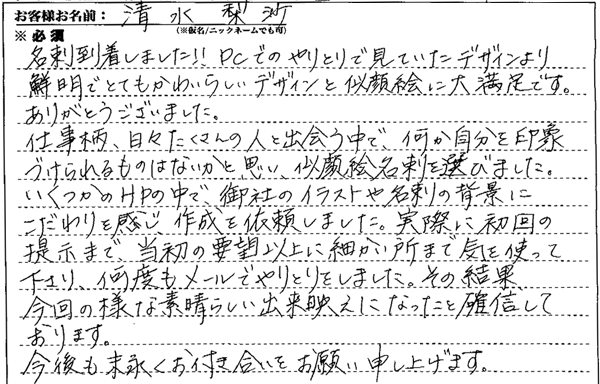 お客様お名前： 清水 梨沙
※必須 （※仮名/ニックネームでも可）
名刺到着しました!! PCでのやりとりで見ていたデザインより
鮮明でとてもかわいらしいデザインと似顔絵に大満足です。
ありがとうございました。
仕事柄、日々たくさんの人と出会う中で、何か自分を印象
づけられるものはないかと思い、似顔絵名刺を選びました。
いくつかのHPの中で、御社のイラストや名刺の背景に
こだわりを感じ、作成を依頼しました。実際に初回の
提示まで、当初の要望以上に細かい所まで気を使って
下さり、何度もメールでやりとりをしました。その結果、
今回の様な素晴らしい出来映えになったと確信して
おります。
今後も末永くお付き合いをお願い申し上げます。